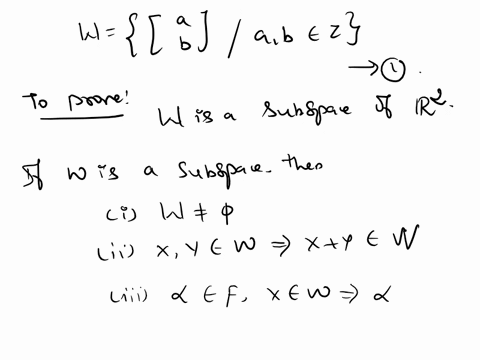 W = { [ a b ] / a, b ∈ Z }
→ ①.
To prove! W is a Subspae of ℝ².
If W is a Subspace. then
(i) W ≠ φ
(ii) x, y ∈ W ⇒ x+y ∈ W
(iii) α ∈ F, x ∈ W ⇒ α